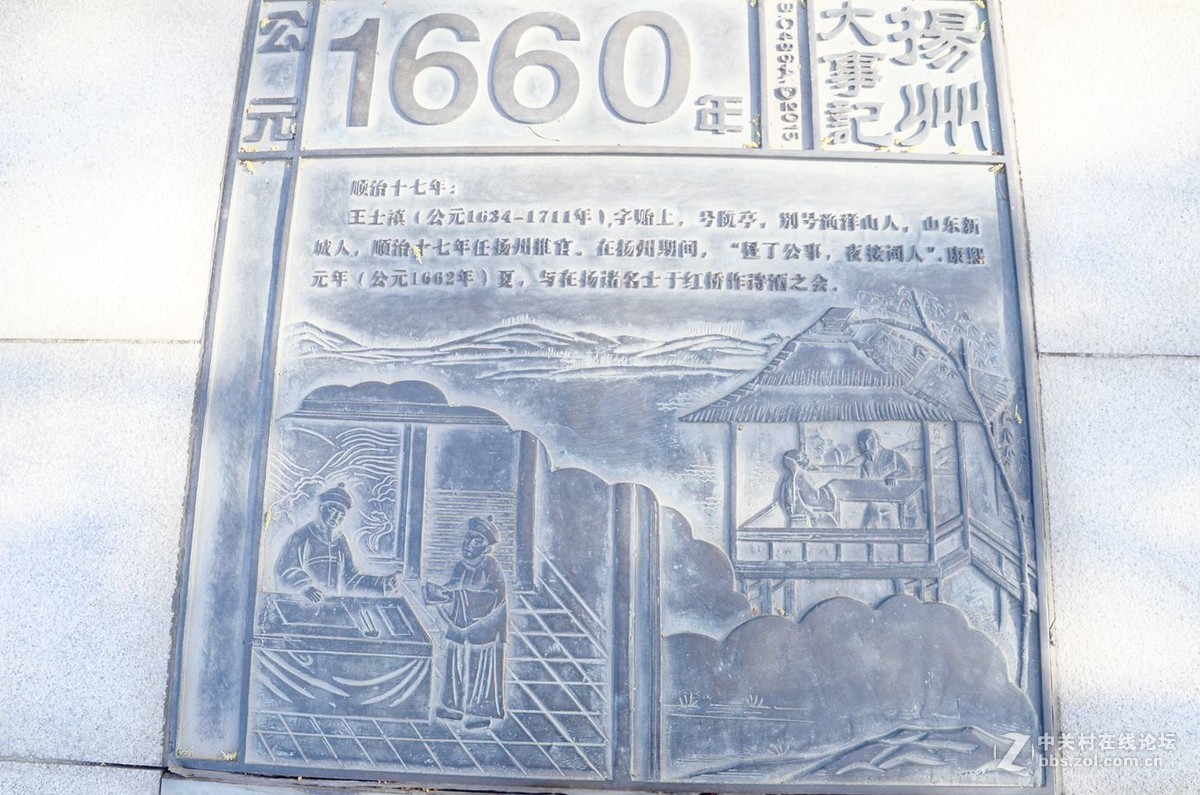 公元
1660年
B.C486A.D2015
扬州
大事記
顺治十七年：
王士滇（公元1634-1711年），字贻上，号阮亭，别号渔洋山人，山东新
城人，顺治十七年任扬州推官。在扬州期间，“昼了公事，夜接词人”，康熙
元年（公元1662年）夏，与在扬诸名士于红桥作诗酒之会。
中关村在线论坛
bbs.zol.com.cn